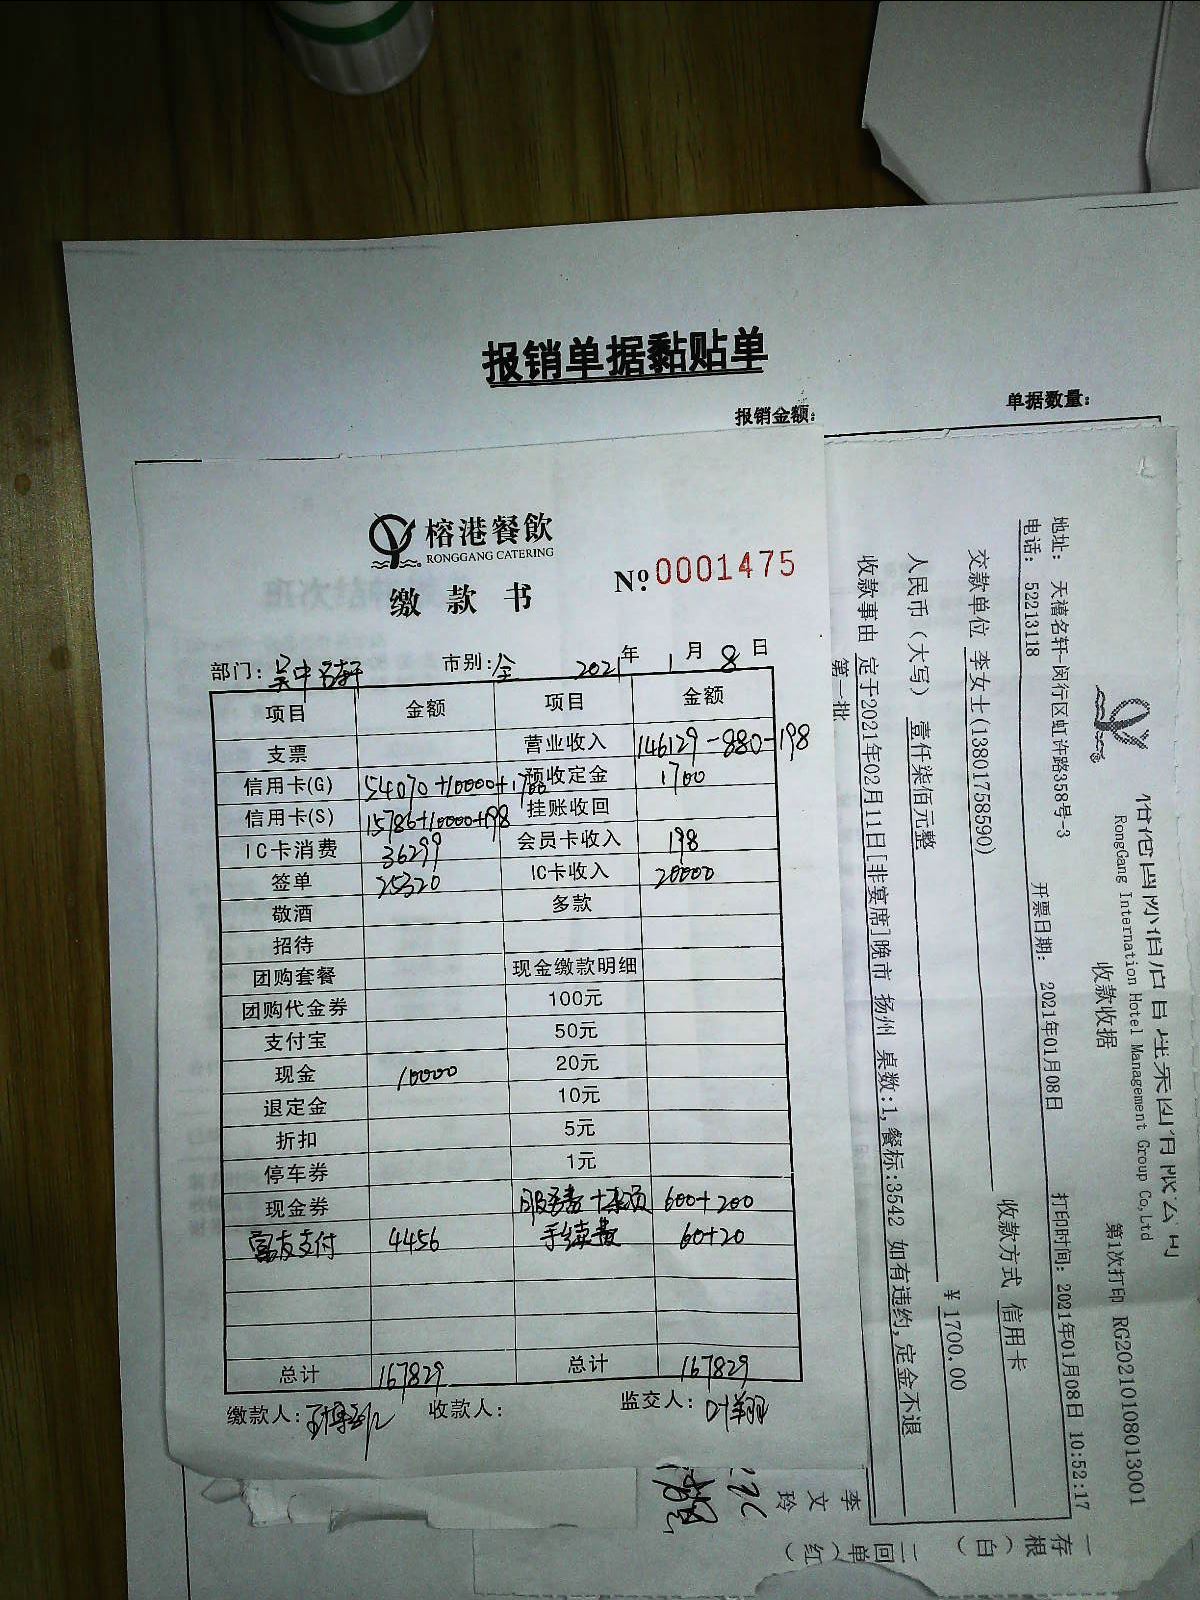 报销单据黏贴单
报销金额: 单据数量:
榕港餐飲
RONGGANG CATERING
缴款书 №0001475
部门: 吴中名轩 市别: 全 2021年1月8日
项目 金额 项目 金额
支票 营业收入 146129-880-198
信用卡(G) 54070+10000+1700 预收定金 1700
信用卡(S) 15786+10000+198 挂账收回
IC卡消费 36299 会员卡收入 198
签单 25320 IC卡收入 20000
敬酒 多款
招待
团购套餐 现金缴款明细
团购代金券 100元
支付宝 50元
现金 10000 20元
退定金 10元
折扣 5元
停车券 1元
现金券 服务费+杂项 600+200
富友支付 4456 手续费 60+20
总计 167829 总计 167829
缴款人: 收款人: 监交人: 叶翔
RongGang International Hotel Management Group Co,Ltd
收款收据
第1次打印 RG20210108013001
地址: 天禧名轩-闵行区虹许路358号-3
电话: 52213118 开票日期: 2021年01月08日 打印时间: 2021年01月08日 10:52:17
交款单位 李女士(13801758590) 收款方式 信用卡
人民币(大写) 壹仟柒佰元整 ¥ 1700.00
收款事由 定于2021年02月11日[非宴席]晚市 扬州 桌数:1, 餐标:3542 如有违约,定金不退
第一批
李文玲
一存根(白) 二回单(红)